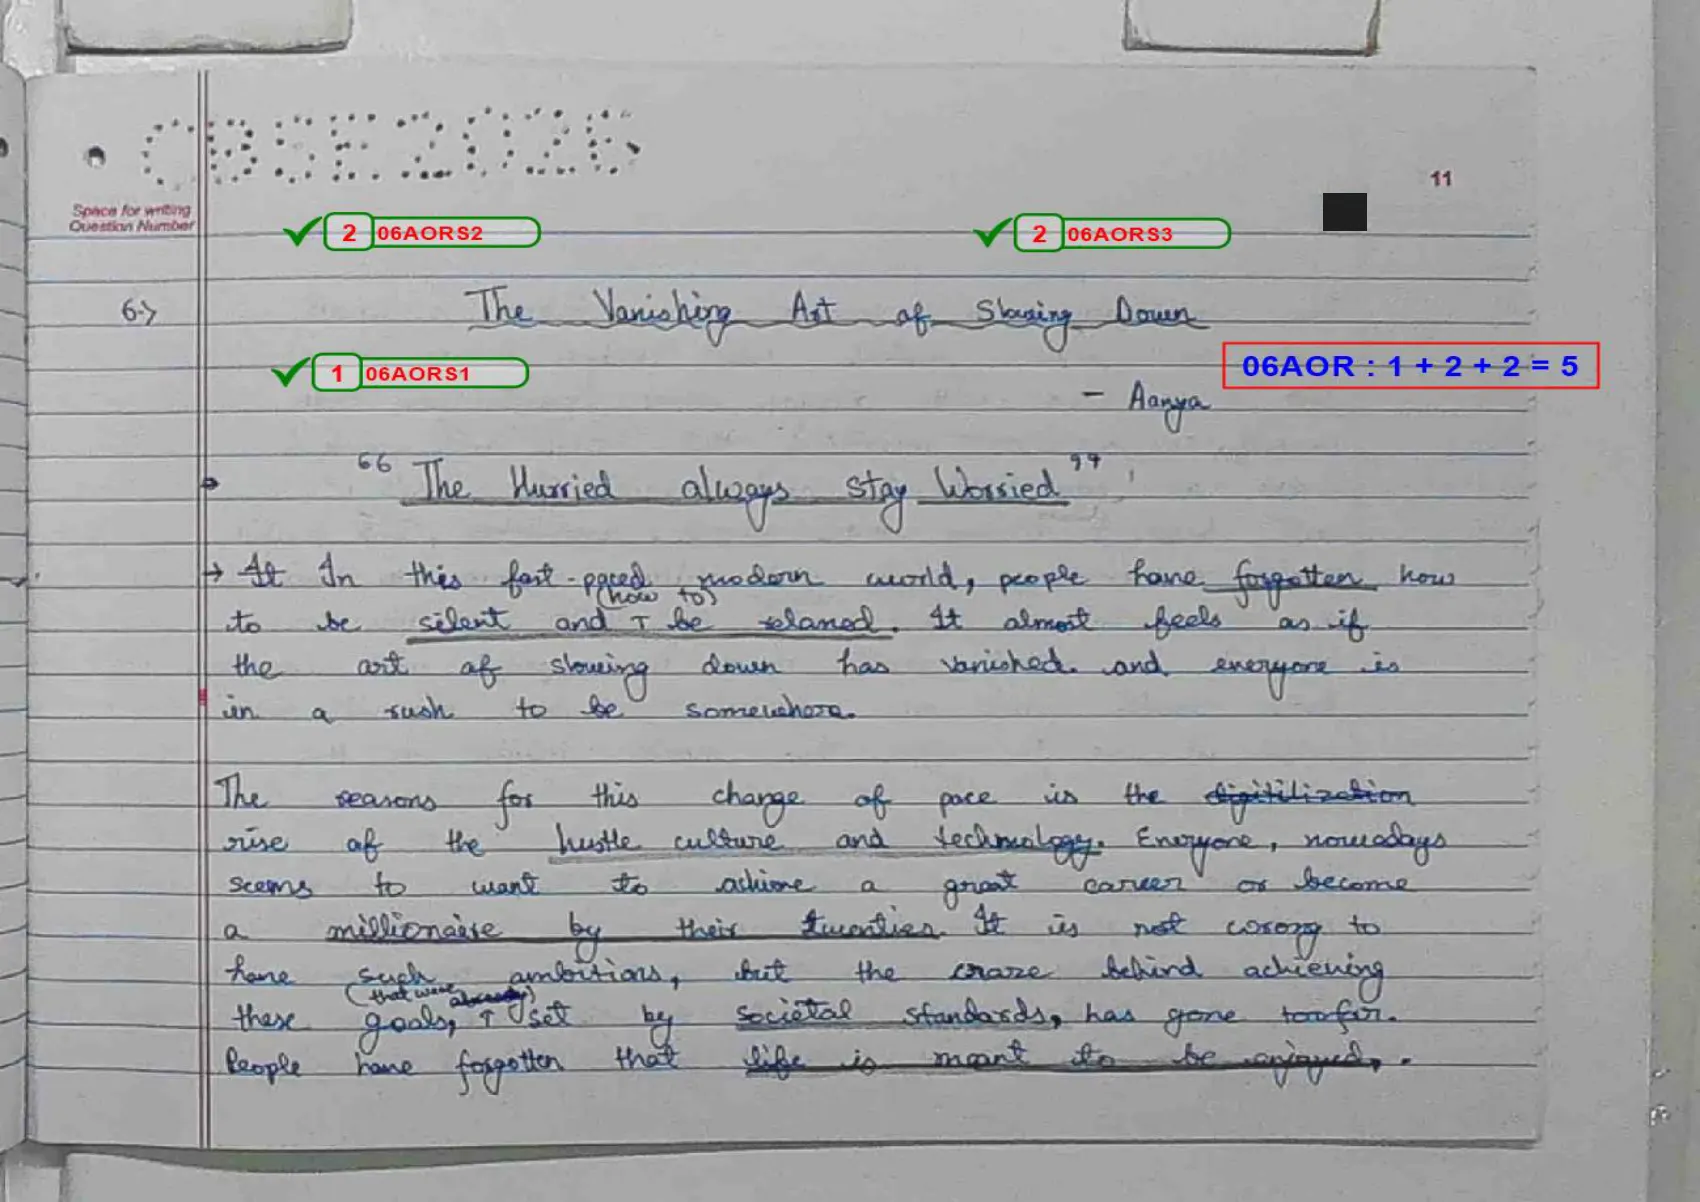 CBSE2026
11
Space for writing
Question Number
2 06AORS2
2 06AORS3
6->
The Vanishing Art of Slowing Down
1 06AORS1
06AOR : 1 + 2 + 2 = 5
- Aanya
"The Hurried always stay Worried"
→ It In this fast-paced modern world, people have forgotten how
(how to)
to be silent and be relaxed. It almost feels as if
the art of slowing down has vanished. and everyone is
in a rush to be somewhere.
The reasons for this change of pace is the digitilization
rise of the hustle culture and technology. Everyone, nowadays
seems to want to achieve a great career or become
a millionaire by their twenties. It is not wrong to
have such ambitions, but the craze behind achieving
(that were already)
these goals, set by societal standards, has gone too far.
People have forgotten that life is meant to be enjoyed.